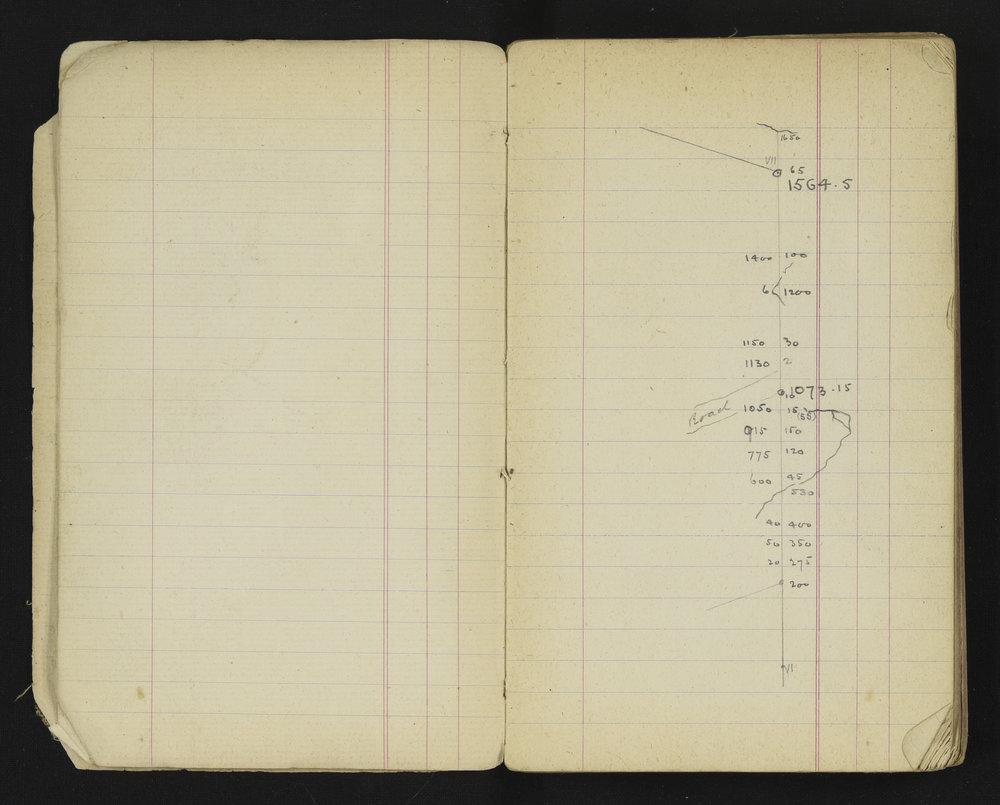 1650
VII
65
1564.5
1400 100
6 1200
1150 30
1130 2
1073.15
10
Road 1050 15
(55)
915 150
775 120
600 45
530
40 400
50 350
20 275
200
VI